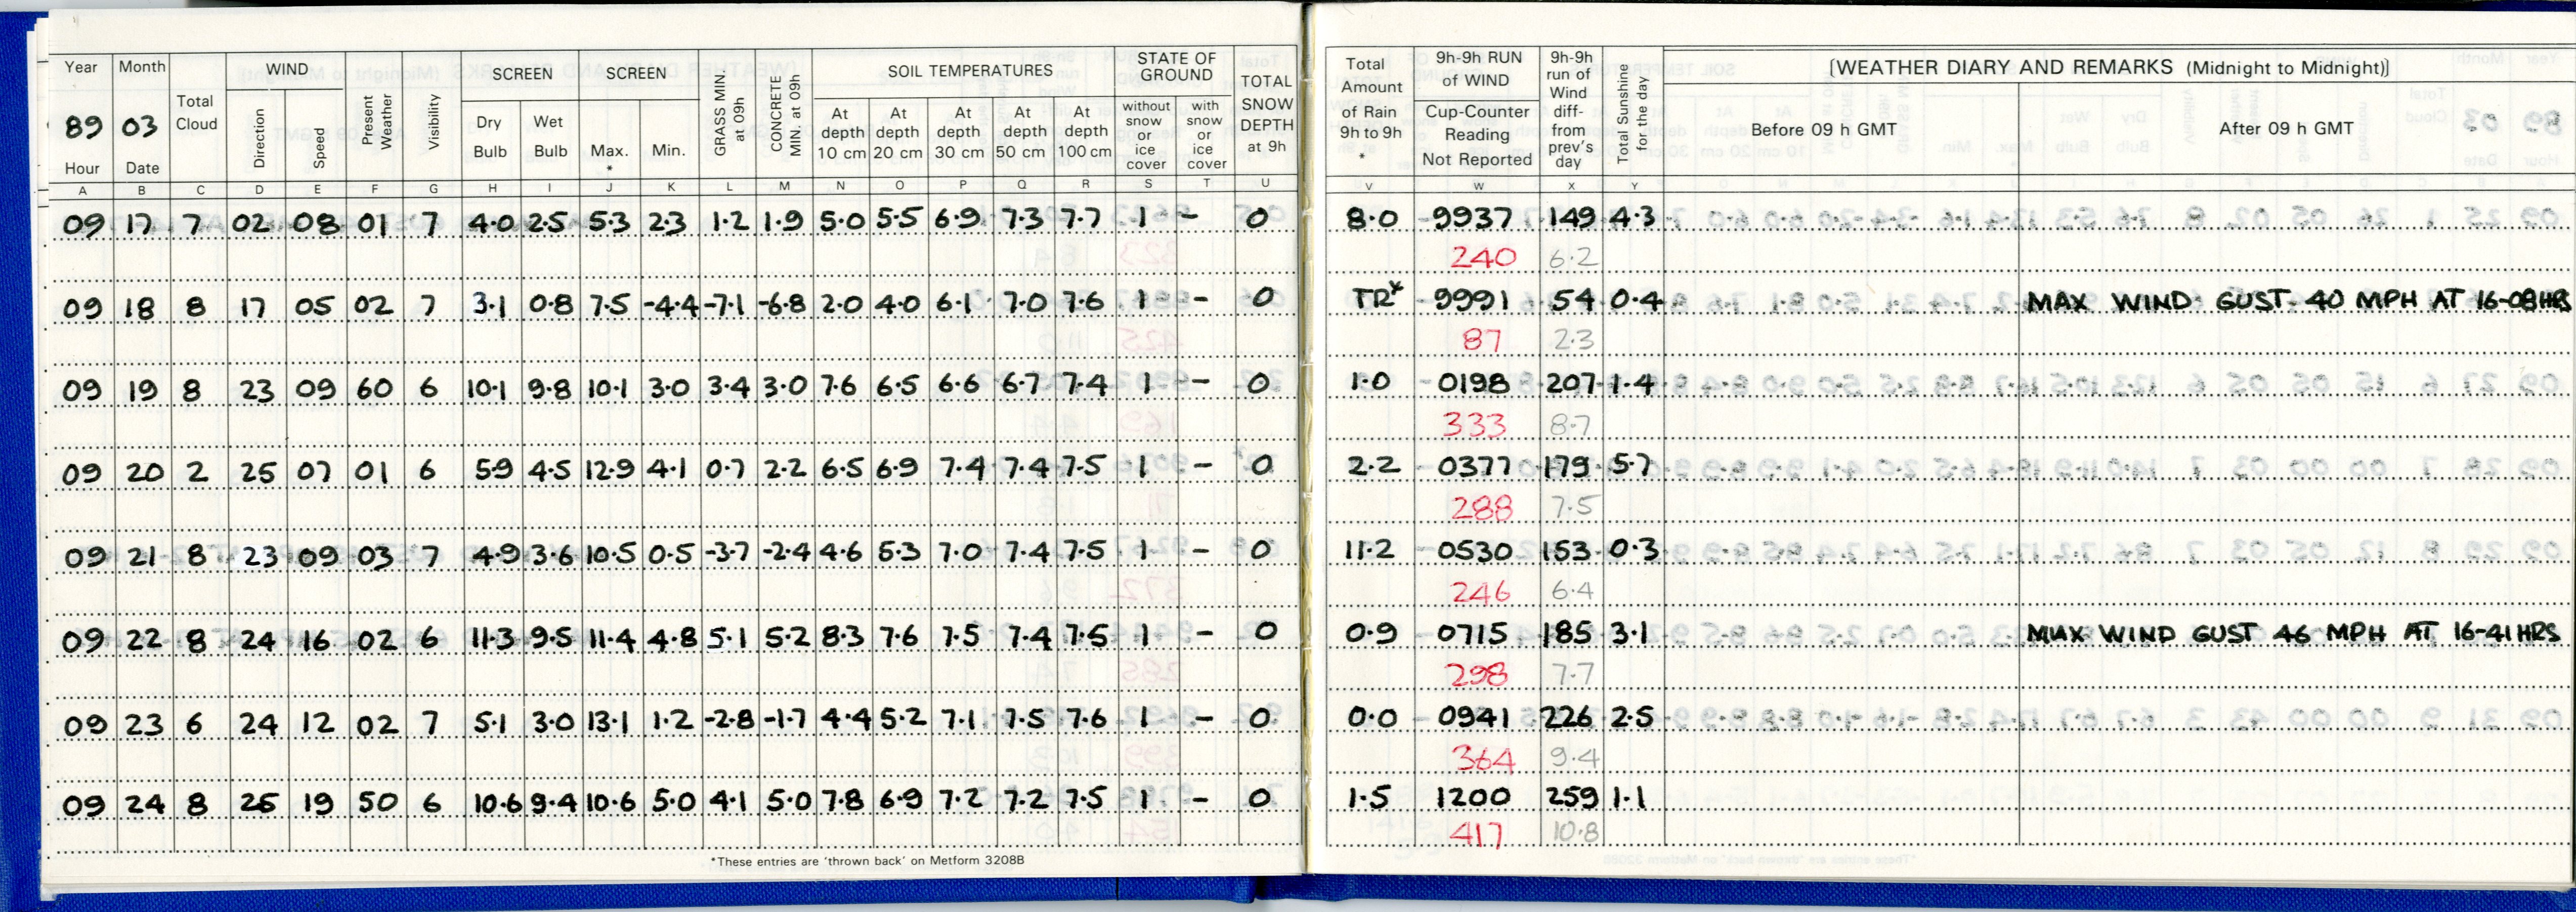 Year Month Total Cloud WIND Present Weather Visibility SCREEN SCREEN GRASS MIN. at 09h CONCRETE MIN. at 09h SOIL TEMPERATURES STATE OF GROUND TOTAL SNOW DEPTH at 9h Total Amount of Rain 9h to 9h * 9h-9h RUN of WIND 9h-9h run of Wind diff- from prev's day Total Sunshine for the day [WEATHER DIARY AND REMARKS (Midnight to Midnight)]
89 03 Direction Speed Dry Bulb Wet Bulb Max. * Min. At depth 10 cm At depth 20 cm At depth 30 cm At depth 50 cm At depth 100 cm without snow or ice cover with snow or ice cover Cup-Counter Reading Not Reported Before 09 h GMT After 09 h GMT
Hour Date
A B C D E F G H I J K L M N O P Q R S T U V W X Y
09 17 7 02 08 01 7 4.0 2.5 5.3 2.3 1.2 1.9 5.0 5.5 6.9 7.3 7.7 1 - 0 8.0 9937 149 4.3
240 6.2
09 18 8 17 05 02 7 3.1 0.8 7.5 -4.4 -7.1 -6.8 2.0 4.0 6.1 7.0 7.6 1 - 0 TR* 9991 54 0.4 MAX WIND GUST 40 MPH AT 16-08HRS
87 2.3
09 19 8 23 09 60 6 10.1 9.8 10.1 3.0 3.4 3.0 7.6 6.5 6.6 6.7 7.4 1 - 0 1.0 0198 207 1.4
333 8.7
09 20 2 25 07 01 6 5.9 4.5 12.9 4.1 0.7 2.2 6.5 6.9 7.4 7.4 7.5 1 - 0 2.2 0377 179 5.7
288 7.5
09 21 8 23 09 03 7 4.9 3.6 10.5 0.5 -3.7 -2.4 4.6 5.3 7.0 7.4 7.5 1 - 0 11.2 0530 153 0.3
246 6.4
09 22 8 24 16 02 6 11.3 9.5 11.4 4.8 5.1 5.2 8.3 7.6 7.5 7.4 7.5 1 - 0 0.9 0715 185 3.1 MAX WIND GUST 46 MPH AT 16-41HRS
298 7.7
09 23 6 24 12 02 7 5.1 3.0 13.1 1.2 -2.8 -1.7 4.4 5.2 7.1 7.5 7.6 1 - 0 0.0 0941 226 2.5
364 9.4
09 24 8 25 19 50 6 10.6 9.4 10.6 5.0 4.1 5.0 7.8 6.9 7.2 7.2 7.5 1 - 0 1.5 1200 259 1.1
417 10.8
*These entries are 'thrown back' on Metform 3208B